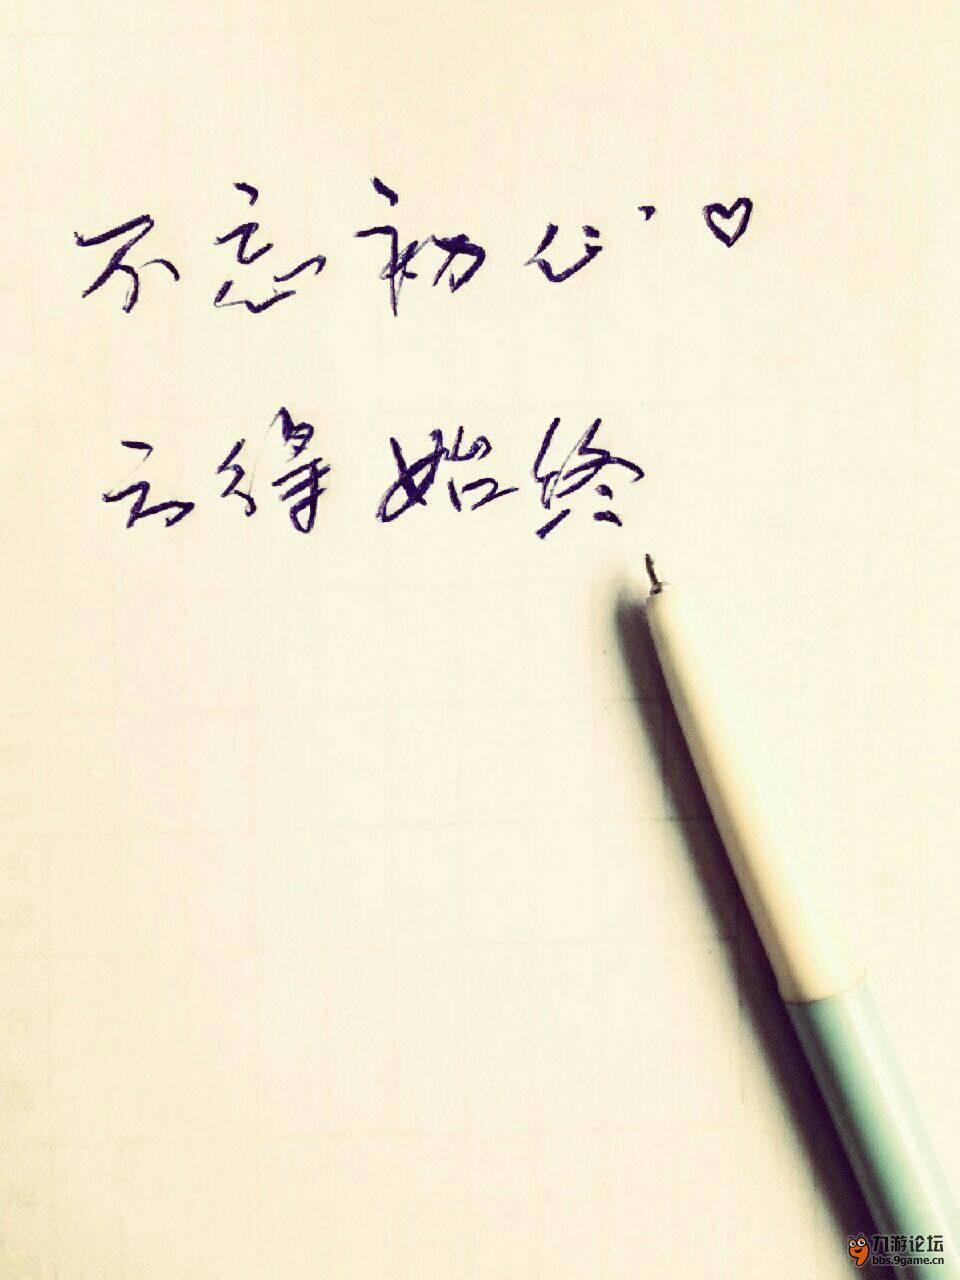 不忘初心 ♡
方得始终
九游论坛
bbs.9game.cn